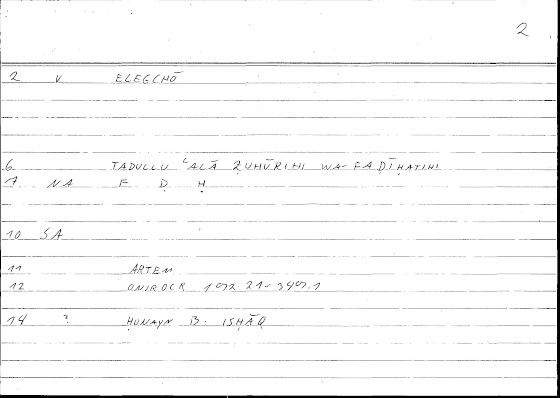 2
2 V ELEGCHŌ
6 TADULLU ʿALĀ ẒUHŪRIHI WA-FAḌĪḤATIHI
7 NA F Ḍ Ḥ
10 SA
11 ARTEM
12 ONIROCR
14 ? ḤUNAYN B. ISḤĀQ